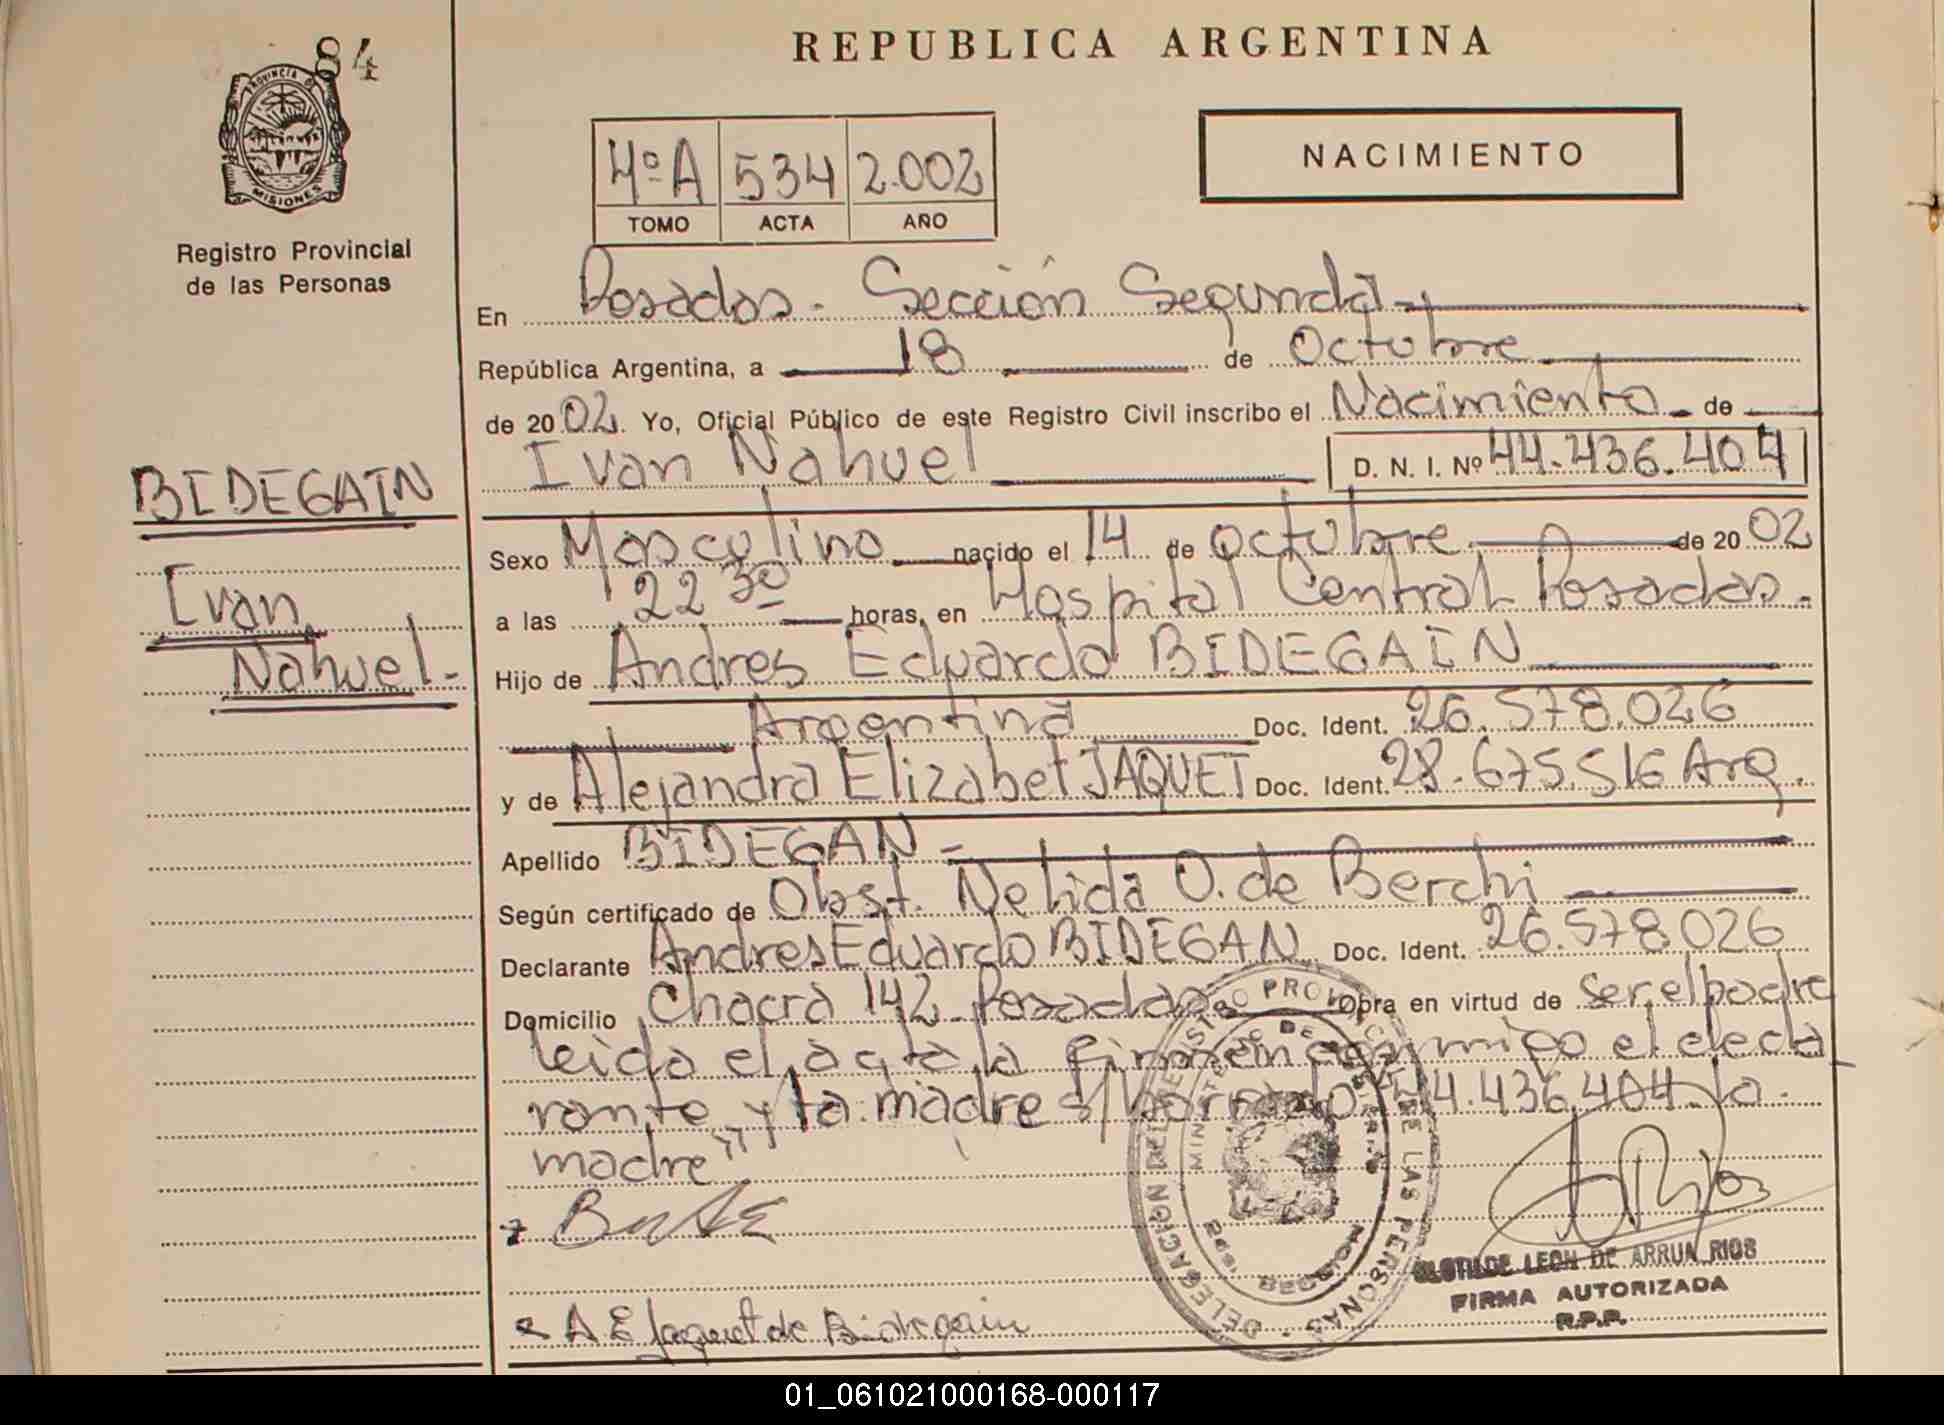 84
PROVINCIA DE
MISIONES
Registro Provincial
de las Personas
REPUBLICA ARGENTINA
4º A 534 2.002
TOMO ACTA AÑO
NACIMIENTO
En Posadas - Sección Segunda
República Argentina, a 18 de Octubre
de 2002. Yo, Oficial Público de este Registro Civil inscribo el Nacimiento de
Ivan Nahuel D. N. I. Nº 44.436.404
BIDEGAIN
Ivan
Nahuel.-
Sexo Masculino nacido el 14 de octubre de 2002
a las 22 30 horas, en Hospital Central Posadas.
Hijo de Andres Eduardo BIDEGAIN
Argentina Doc. Ident. 26.578.026
y de Alejandra Elizabet JAQUET Doc. Ident. 28.675.516 Arg.
Apellido BIDEGAN -
Según certificado de Obst. Nelida O. de Berchi
Declarante Andres Eduardo BIDEGAN Doc. Ident. 26.578.026
Domicilio Chacra 142 - Posadas Obra en virtud de ser el padre
leida el acta la firman conmigo el decla
rante y la madre s/borrado 44.436.404 la
madre"
A E Jaquet de Bidegain
DELEGACION DEL REGISTRO PROVINCIAL DE LAS PERSONAS
MISIONES
CLOTILDE LEON DE ARRUA RIOS
FIRMA AUTORIZADA
R.P.P.
01_061021000168-000117